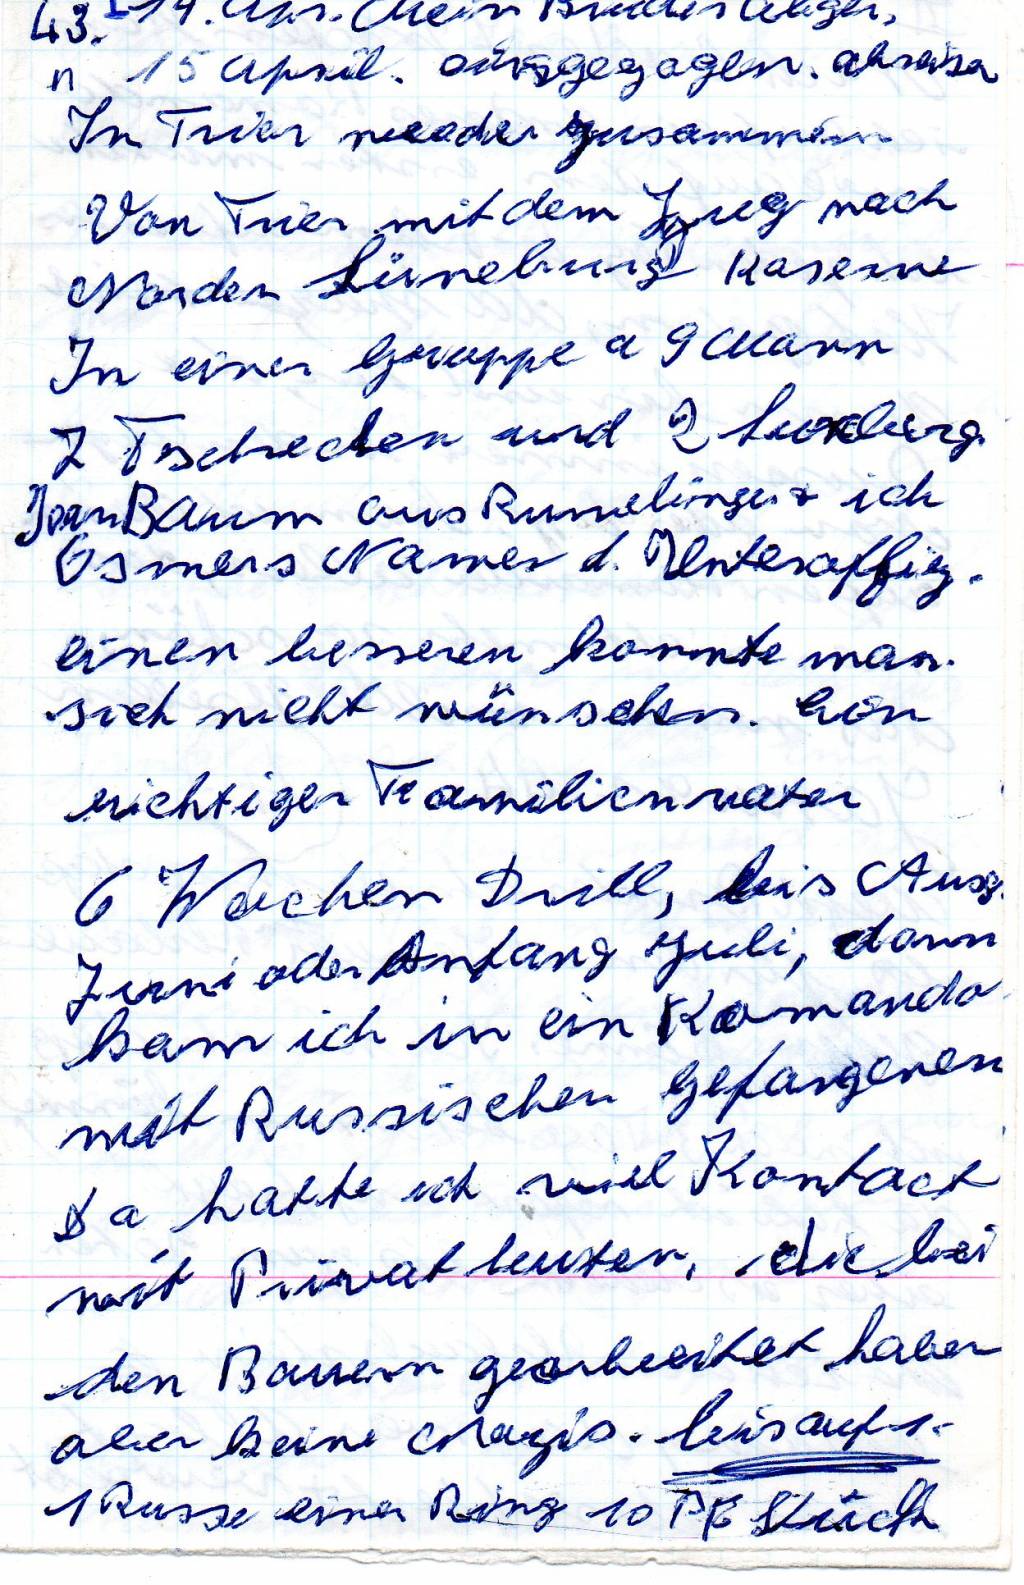 43. 14. Apr. Mein Bruder
n 15 April. abreise
In Trier wieder zusammen
Von Trier mit dem Zug nach
Norden Lüneburg Kaserne
In einer Gruppe a 9 Mann
7 Tschechen und 2 Luxburg.
Jean Baum aus Rumelingen + ich
Osmers Namen d. Unteroffiz.
einen besseren konnte man
sich nicht wünschen. Ein
richtiger Familienvater
6 Wochen Drill, bis Ausg.
Juni oder Anfang Juli, dann
kam ich in ein Komando
mit Russischen Gefangenen
Da hatte ich viel Kontact
mit Privat leuten, die bei
den Bauern gearbeitet haben
aber keine Nazis. bis auf 1.
1 Russe einen Ring 10 Pf Stück